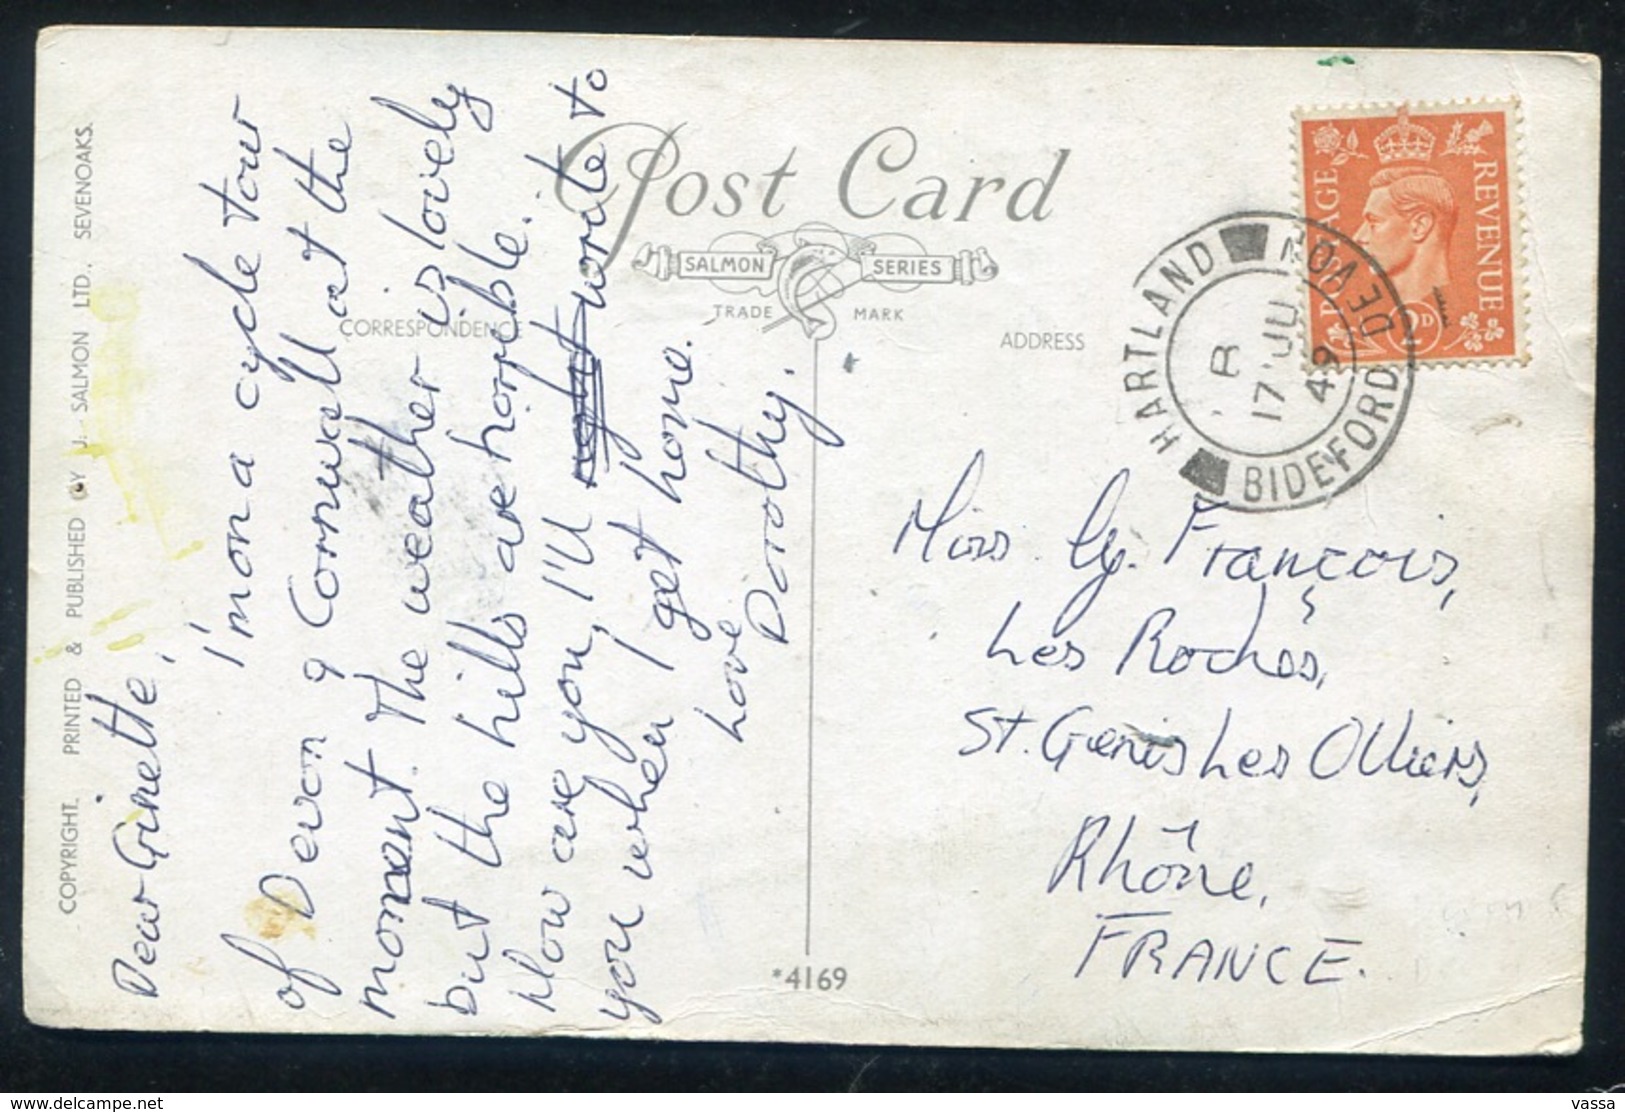 COPYRIGHT. PRINTED & PUBLISHED BY J. SALMON LTD., SEVENOAKS.
Dear Ginette,
I'm on a cycle tour
of Devon & Cornwall at the
moment. The weather is lovely
but the hills are horrible.
How are you, I'll write to
you when I get home.
Love
Dorothy.
Post Card
SALMON SERIES
TRADE MARK
CORRESPONDENCE
ADDRESS
*4169
POSTAGE REVENUE
2D
HARTLAND DEVON
BIDEFORD
R
17 JU
49
Miss. Gy. François,
Les Roches,
St. Genis Les Olliers,
Rhône,
FRANCE.
delcampe.net
vassa